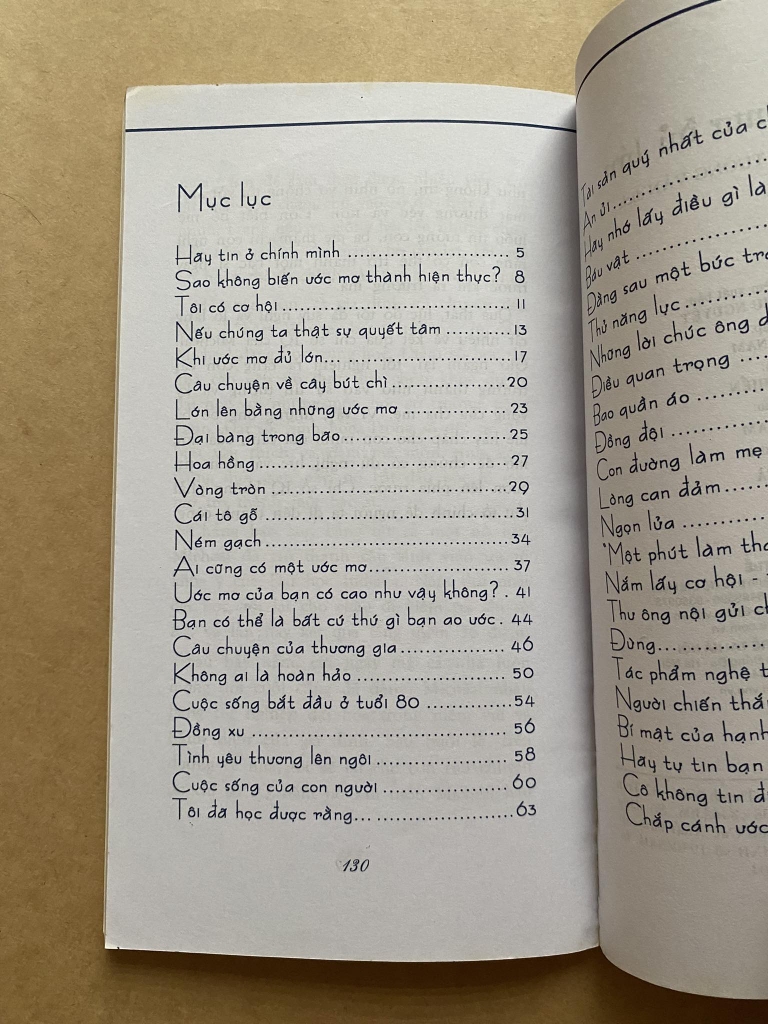 Mục lục
Hãy tin ở chính mình .............................. 5
Sao không biến ước mơ thành hiện thực? 8
Tôi có cơ hội .......................................... 11
Nếu chúng ta thật sự quyết tâm ............ 13
Khi ước mơ đủ lớn... ............................. 17
Câu chuyện về cây bút chì ..................... 20
Lớn lên bằng những ước mơ ................. 23
Đại bàng trong bão ................................ 25
Hoa hồng ............................................... 27
Vòng tròn .............................................. 29
Cái tô gỗ ............................................... 31
Ném gạch .............................................. 34
Ai cũng có một ước mơ ......................... 37
Ước mơ của bạn có cao như vậy không? . 41
Bạn có thể là bất cứ thứ gì bạn ao ước . 44
Câu chuyện của thương gia ................... 46
Không ai là hoàn hảo ............................ 50
Cuộc sống bắt đầu ở tuổi 80 ................ 54
Đồng xu ................................................ 56
Tình yêu thương lên ngôi ...................... 58
Cuộc sống của con người ..................... 60
Tôi đã học được rằng... ........................ 63
130
Tài sản quý nhất của
An ủi ..............................
Hãy nhớ lấy điều gì là
Báu vật ..........................
Đằng sau một bức
Thử năng lực ..................
Những lời chúc ông
Điều quan trọng ..............
Bao quần áo ...................
Đồng đội ........................
Con đường làm mẹ
Lòng can đảm .................
Ngọn lửa ........................
"Một phút làm
Nắm lấy cơ hội -
Thư ông nội gửi
Đừng... ..........................
Tác phẩm nghệ
Người chiến
Bí mật của
Hãy tự tin bạn
Cô không tin
Chắp cánh ước